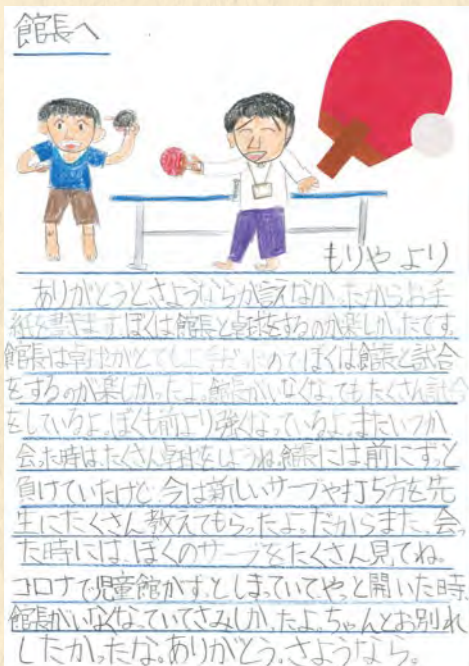 館長へ
もりやより
ありがとうとさようならが言えなかったからお手
紙を書きます。ぼくは館長と卓球をするのが楽しかったです。
館長は卓球がとても上手だったのでぼくは館長と試合
をするのが楽しかったよ。館長がいなくなってもたくさん試合
をしているよ。ぼくも前より強くなっているよ。またいつか
会った時は、たくさん卓球をしようね。館長には前にずっと
負けていたけど、今は新しいサーブや打ち方を先
生にたくさん教えてもらったよ。だからまた、会っ
た時には、ぼくのサーブをたくさん見てね。
コロナで児童館がずっとしまっていてやっと開いた時、
館長がいなくなっていてさみしかったよ。ちゃんとお別れ
したかったな。ありがとう。さようなら。